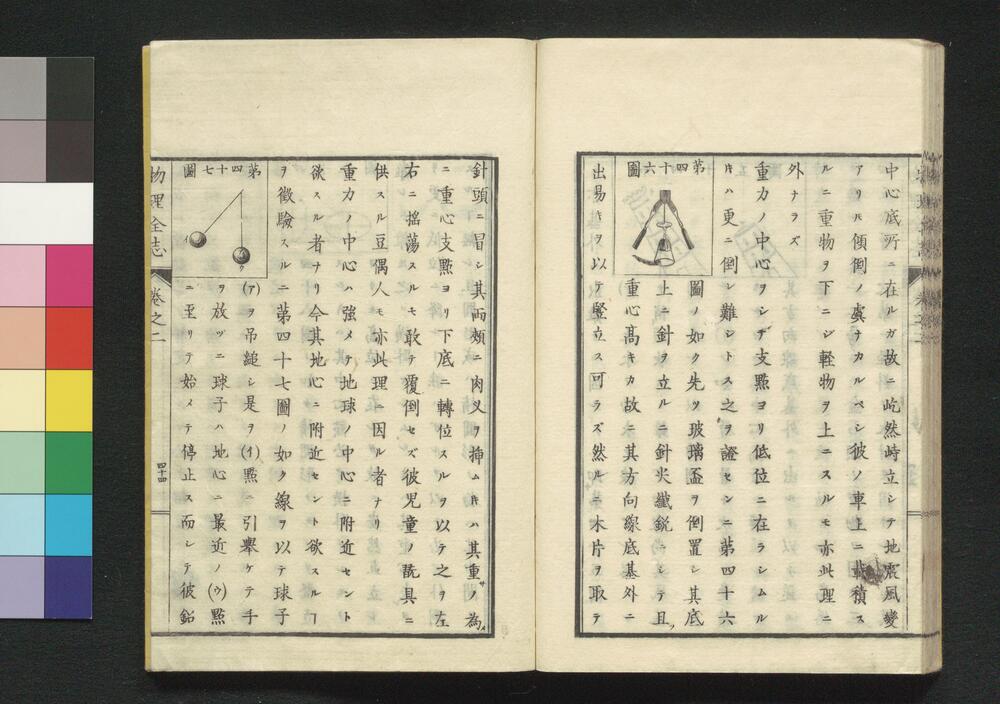 中心底所ニ在ルガ故ニ屹然峙立シテ地震風變
アリトモ傾倒ノ虞ナカルベシ彼ノ車上ニ載積ス
ルニ重物ヲ下ニシ輕物ヲ上ニスルモ亦此理ニ
外ナラズ
重力ノ中心ヲシテ支點ヨリ低位ニ在ラシムル
𪜈ハ更ニ倒シ難シトス之ヲ證センニ第四十六
第四十六圖
圖ノ如ク先ヅ玻璃盃ヲ倒置シ其底
上ニ針ヲ立ルニ針尖纖鋭ニシテ且
重心髙キカ故ニ其方向線底基外ニ
出易キヲ以テ豎立ス可ラズ然ルニ木片ヲ取テ
針頭ニ冒シ其兩頰ニ肉叉ヲ揷ム𪜈ハ其重サノ為メ
ニ重心支點ヨリ下底ニ轉位スルヲ以テ之ヲ左
右ニ搖蕩スルモ敢テ覆倒セズ彼児童ノ翫具ニ
供スル豆偶人モ亦此理ニ因ル者ナリ
重力ノ中心ハ強メテ地球ノ中心ニ附近セント
欲スル者ナリ今其地心ニ附近セント欲スルヿ
ヲ徴驗スルニ第四十七圖ノ如ク線ヲ以テ球子
第四十七圖
イ
ア
(ア)ヲ吊縋シ是ヲ(イ)點ニ引舉ケテ手
ヲ放ツニ球子ハ地心ニ最近ノ(ウ)點
ニ至リテ始メテ停止ス而シテ彼鉛
物理全志
卷之二
四十四